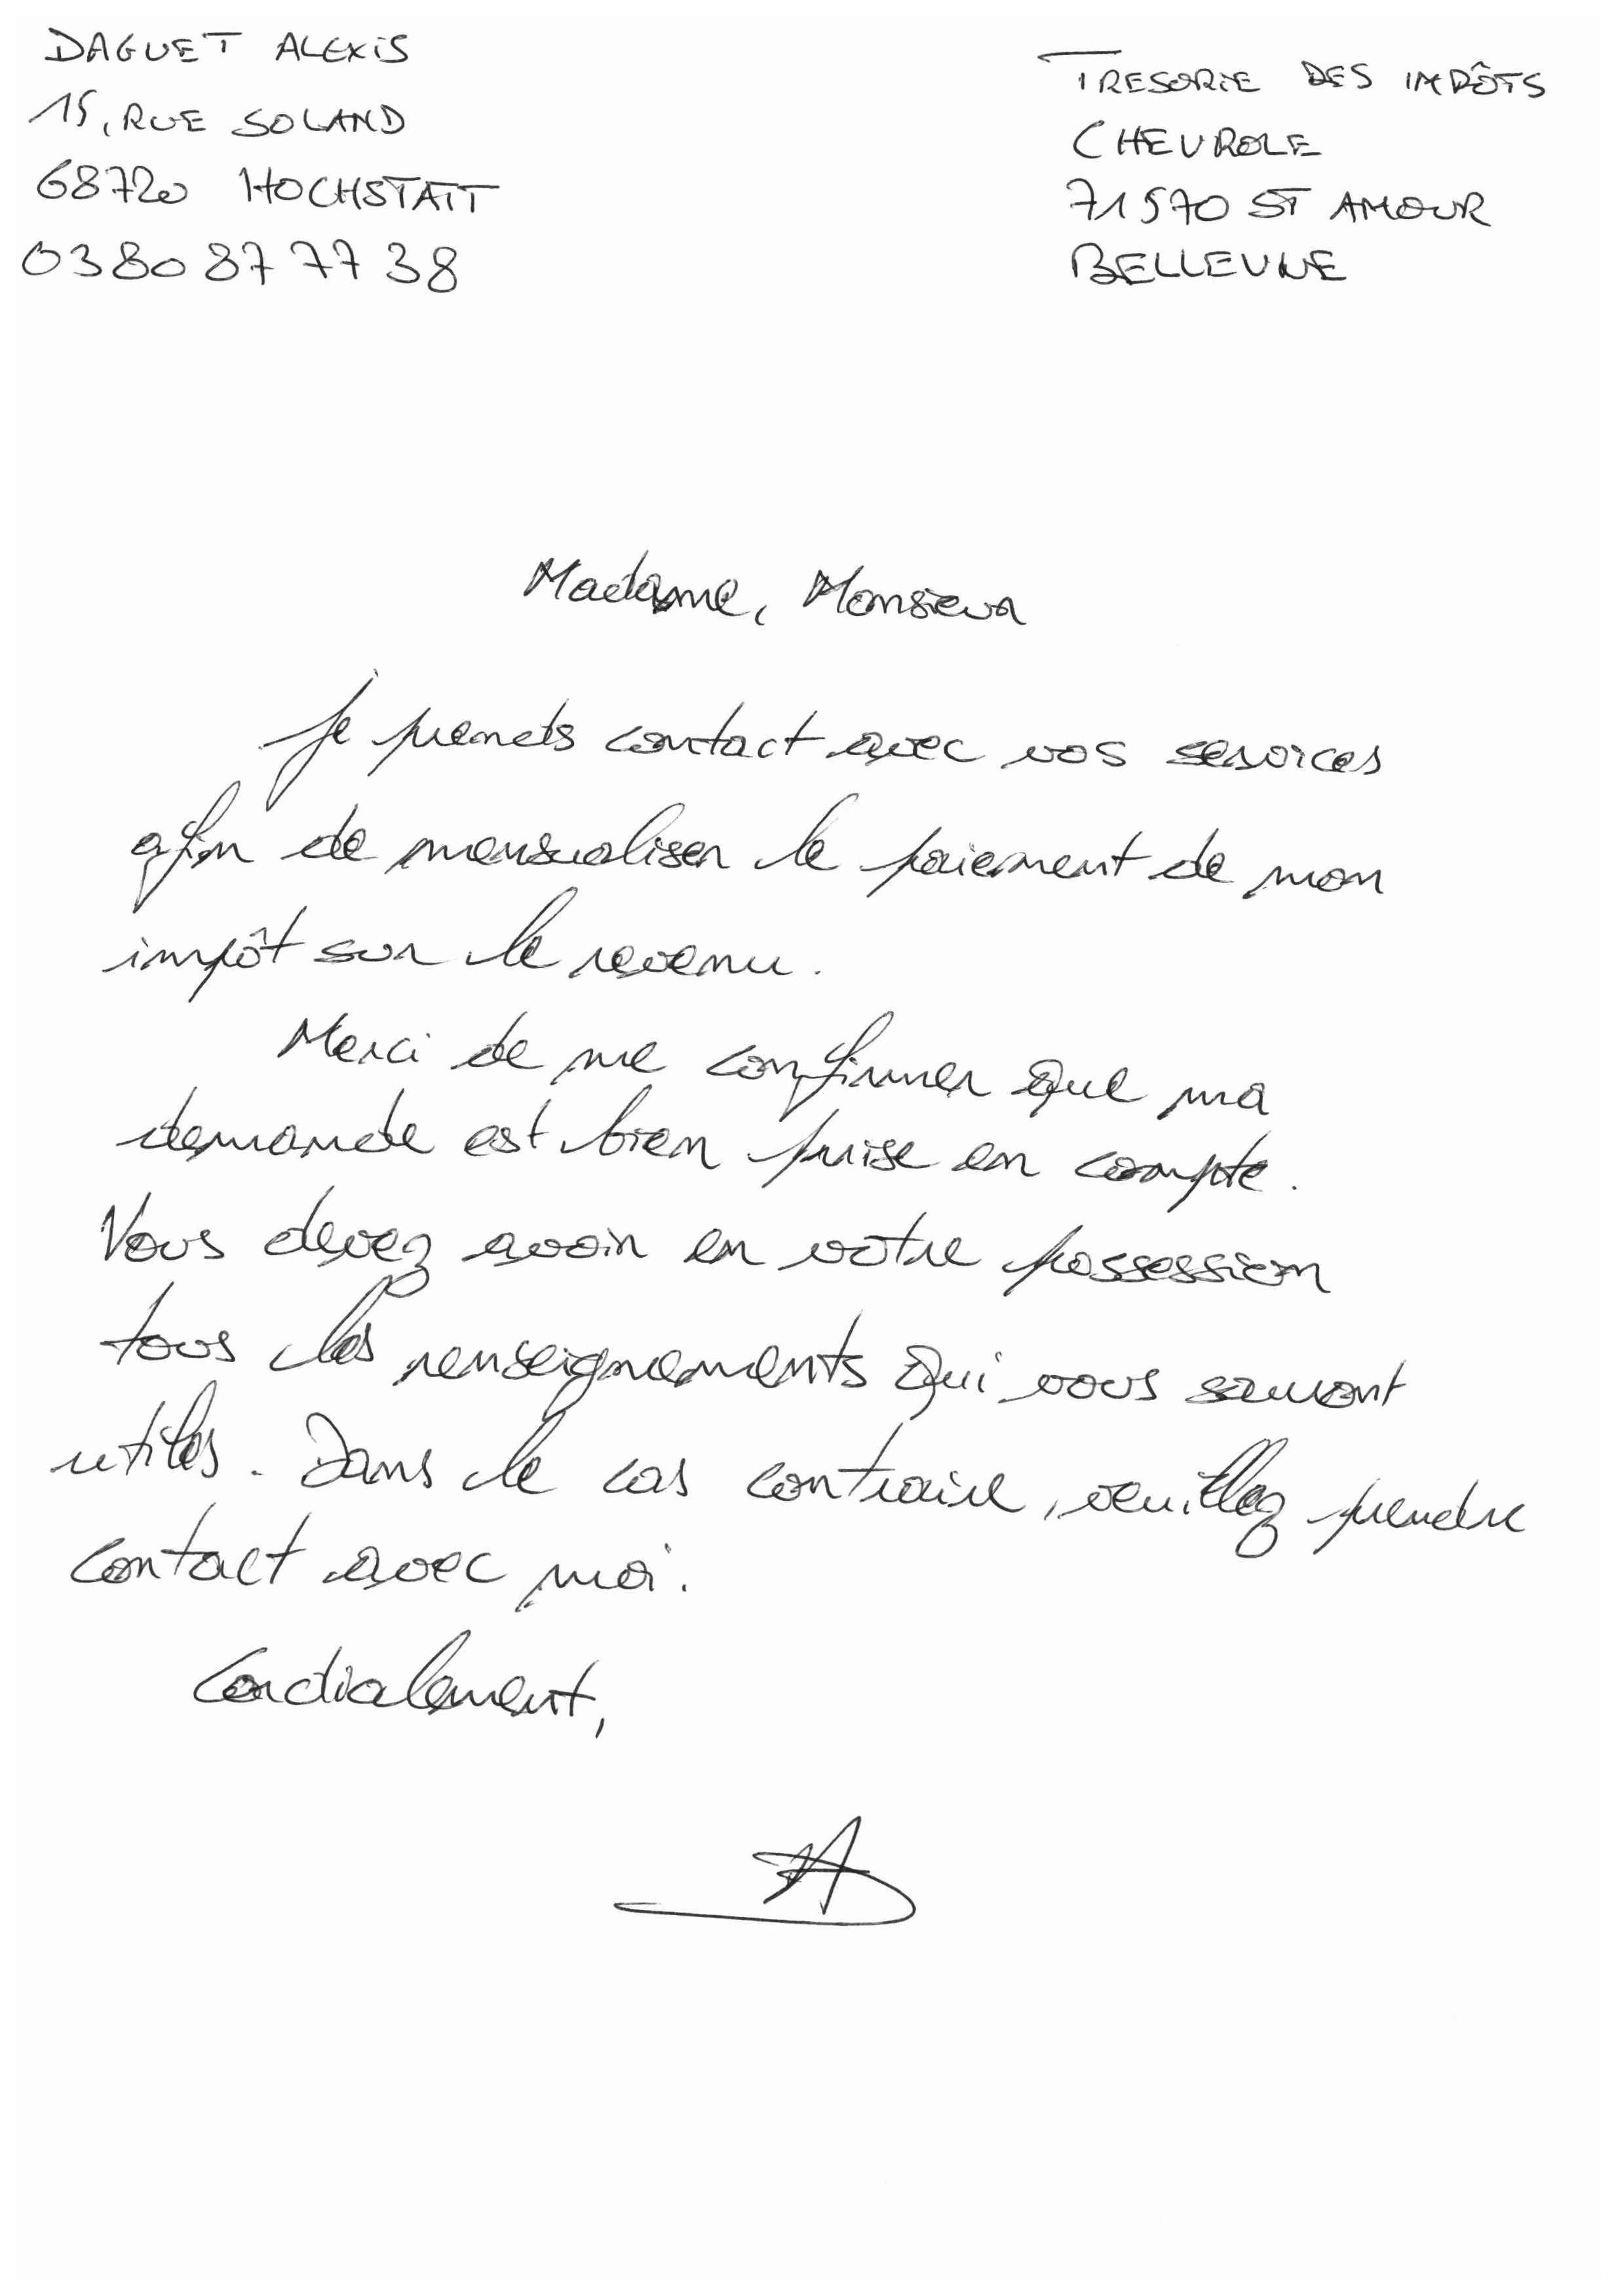 DAGUET ALEXIS
15, RUE SOLAND
68720 HOCHSTATT
03 80 87 77 38
TRESORIE DES IMPÔTS
CHEVROLE
71570 ST AMOUR
BELLEVUE
Madame, Monsieur
Je prends contact avec vos services
afin de mensualiser le paiement de mon
impôt sur le revenu.
Merci de me confirmer que ma
demande est bien prise en compte.
Vous devez avoir en votre possession
tous les renseignements qui vous seront
utiles. Dans le cas contraire, veuillez prendre
contact avec moi.
Cordialement,